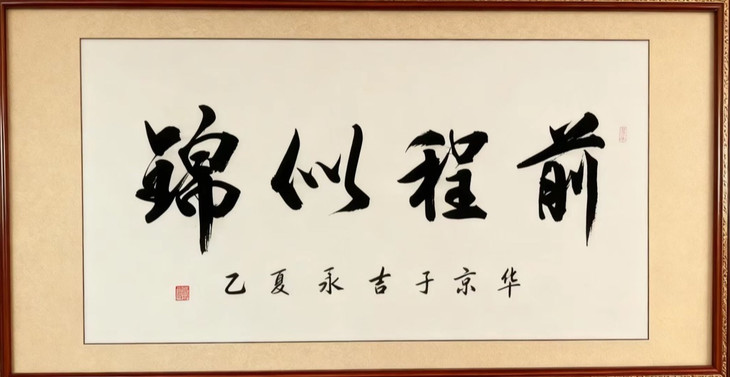 前程似锦
乙夏永吉子京华